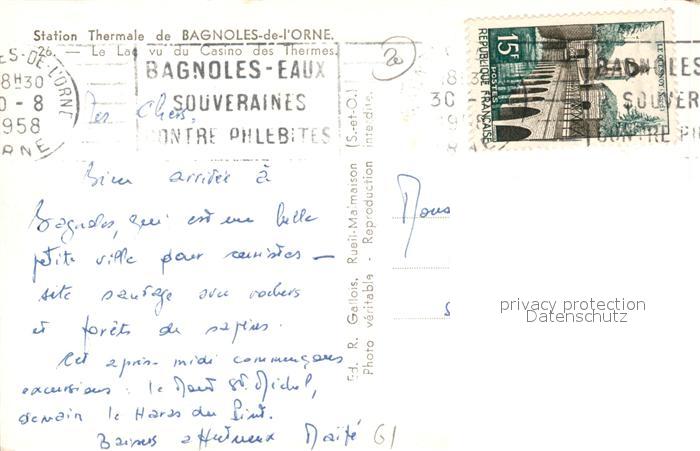 Station Thermale de BAGNOLES-de-l'ORNE.
26. — Le Lac vu du Casino des Thermes.
S-DE-L'ORNE
8H30
0-8
1958
ORNE
BAGNOLES-EAUX
SOUVERAINES
CONTRE PHLEBITES
8H30
30-8
195
BAGNOLES
SOUVER
CONTRE PH
15F
REPUBLIQUE FRANÇAISE
POSTES
LE QUESNOY
Mes Chers,
Bien arrivée à
Bagnoles, qui est une belle
petite ville pour curistes —
site sauvage avec rochers
et forêts de sapins.
Cet après-midi commençons
excursions : le Mont St. Michel,
demain le Haras du Pin.
Baisers affectueux Maïté
Ed. R. Gallois, Rueil-Malmaison (S.-et-O.)
Photo véritable - Reproduction interdite.
Mons
s
privacy protection
Datenschutz